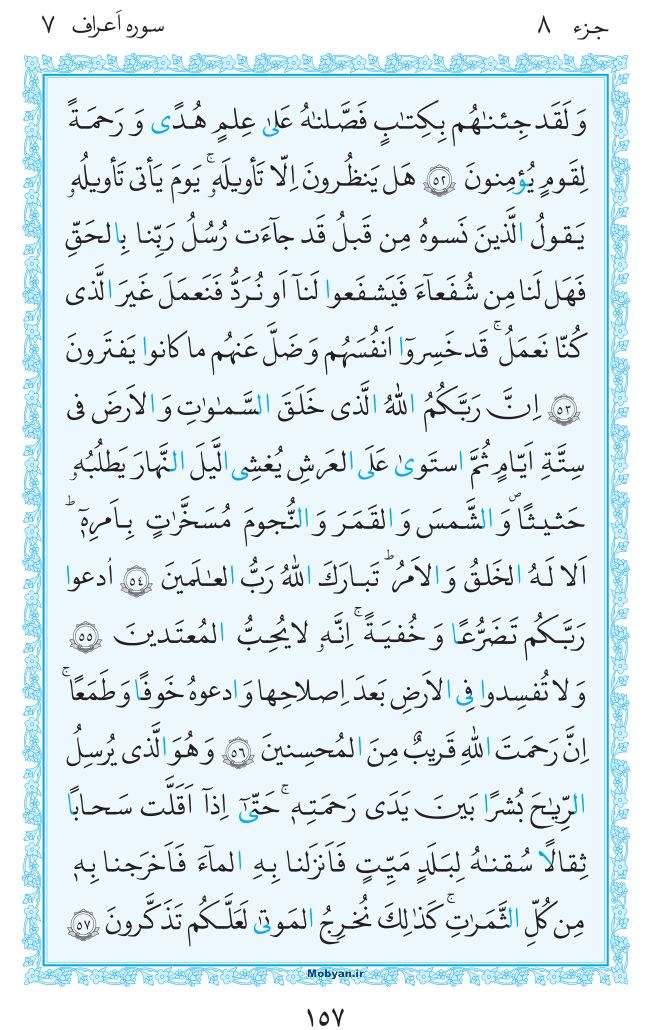 جزء ۸ سوره اَعراف ۷
وَ لَقَد جِئنٰهُم بِكِتٰبٍ فَصَّلنٰهُ عَلىٰ عِلمٍ هُدًى وَ رَحمَةً
لِقَومٍ يُؤمِنونَ ﴿۵۲﴾ هَل يَنظُرونَ اِلّا تَأويلَهُۥ ۚ يَومَ يَأتى تَأويلُهُۥ
يَقولُ الَّذينَ نَسوهُ مِن قَبلُ قَد جآءَت رُسُلُ رَبِّنا بِالحَقِّ
فَهَل لَنا مِن شُفَعآءَ فَيَشفَعوا لَنآ اَو نُرَدُّ فَنَعمَلَ غَيرَ الَّذى
كُنّا نَعمَلُ ۚ قَد خَسِروٓا اَنفُسَهُم وَ ضَلَّ عَنهُم ما كانوا يَفتَرونَ
﴿۵۳﴾ اِنَّ رَبَّكُمُ اللهُ الَّذى خَلَقَ السَّمٰوٰتِ وَ الاَرضَ فى
سِتَّةِ اَيّامٍ ثُمَّ استَوىٰ عَلَى العَرشِ يُغشِى الَّيلَ النَّهارَ يَطلُبُهُۥ
حَثيثًا ۖ وَ الشَّمسَ وَ القَمَرَ وَ النُّجومَ مُسَخَّرٰتٍ بِاَمرِهِۦٓ ۗ
اَلا لَهُ الخَلقُ وَ الاَمرُ ۗ تَبارَكَ اللهُ رَبُّ العٰلَمينَ ﴿۵۴﴾ اُدعوا
رَبَّكُم تَضَرُّعًا وَ خُفيَةً ۚ اِنَّهُۥ لا يُحِبُّ المُعتَدينَ ﴿۵۵﴾
وَ لا تُفسِدوا فِى الاَرضِ بَعدَ اِصلاحِها وَ ادعوهُ خَوفًا وَ طَمَعًا ۚ
اِنَّ رَحمَتَ اللهِ قَريبٌ مِنَ المُحسِنينَ ﴿۵۶﴾ وَ هُوَ الَّذى يُرسِلُ
الرِّيٰحَ بُشرًا بَينَ يَدَى رَحمَتِهِۦ ۚ حَتّىٰٓ اِذآ اَقَلَّت سَحابًا
ثِقالًا سُقنٰهُ لِبَلَدٍ مَيِّتٍ فَاَنزَلنا بِهِ المآءَ فَاَخرَجنا بِهِۦ
مِن كُلِّ الثَّمَرٰتِ ۚ كَذٰلِكَ نُخرِجُ المَوتىٰ لَعَلَّكُم تَذَكَّرونَ ﴿۵۷﴾
Mobyan.ir
۱۵۷